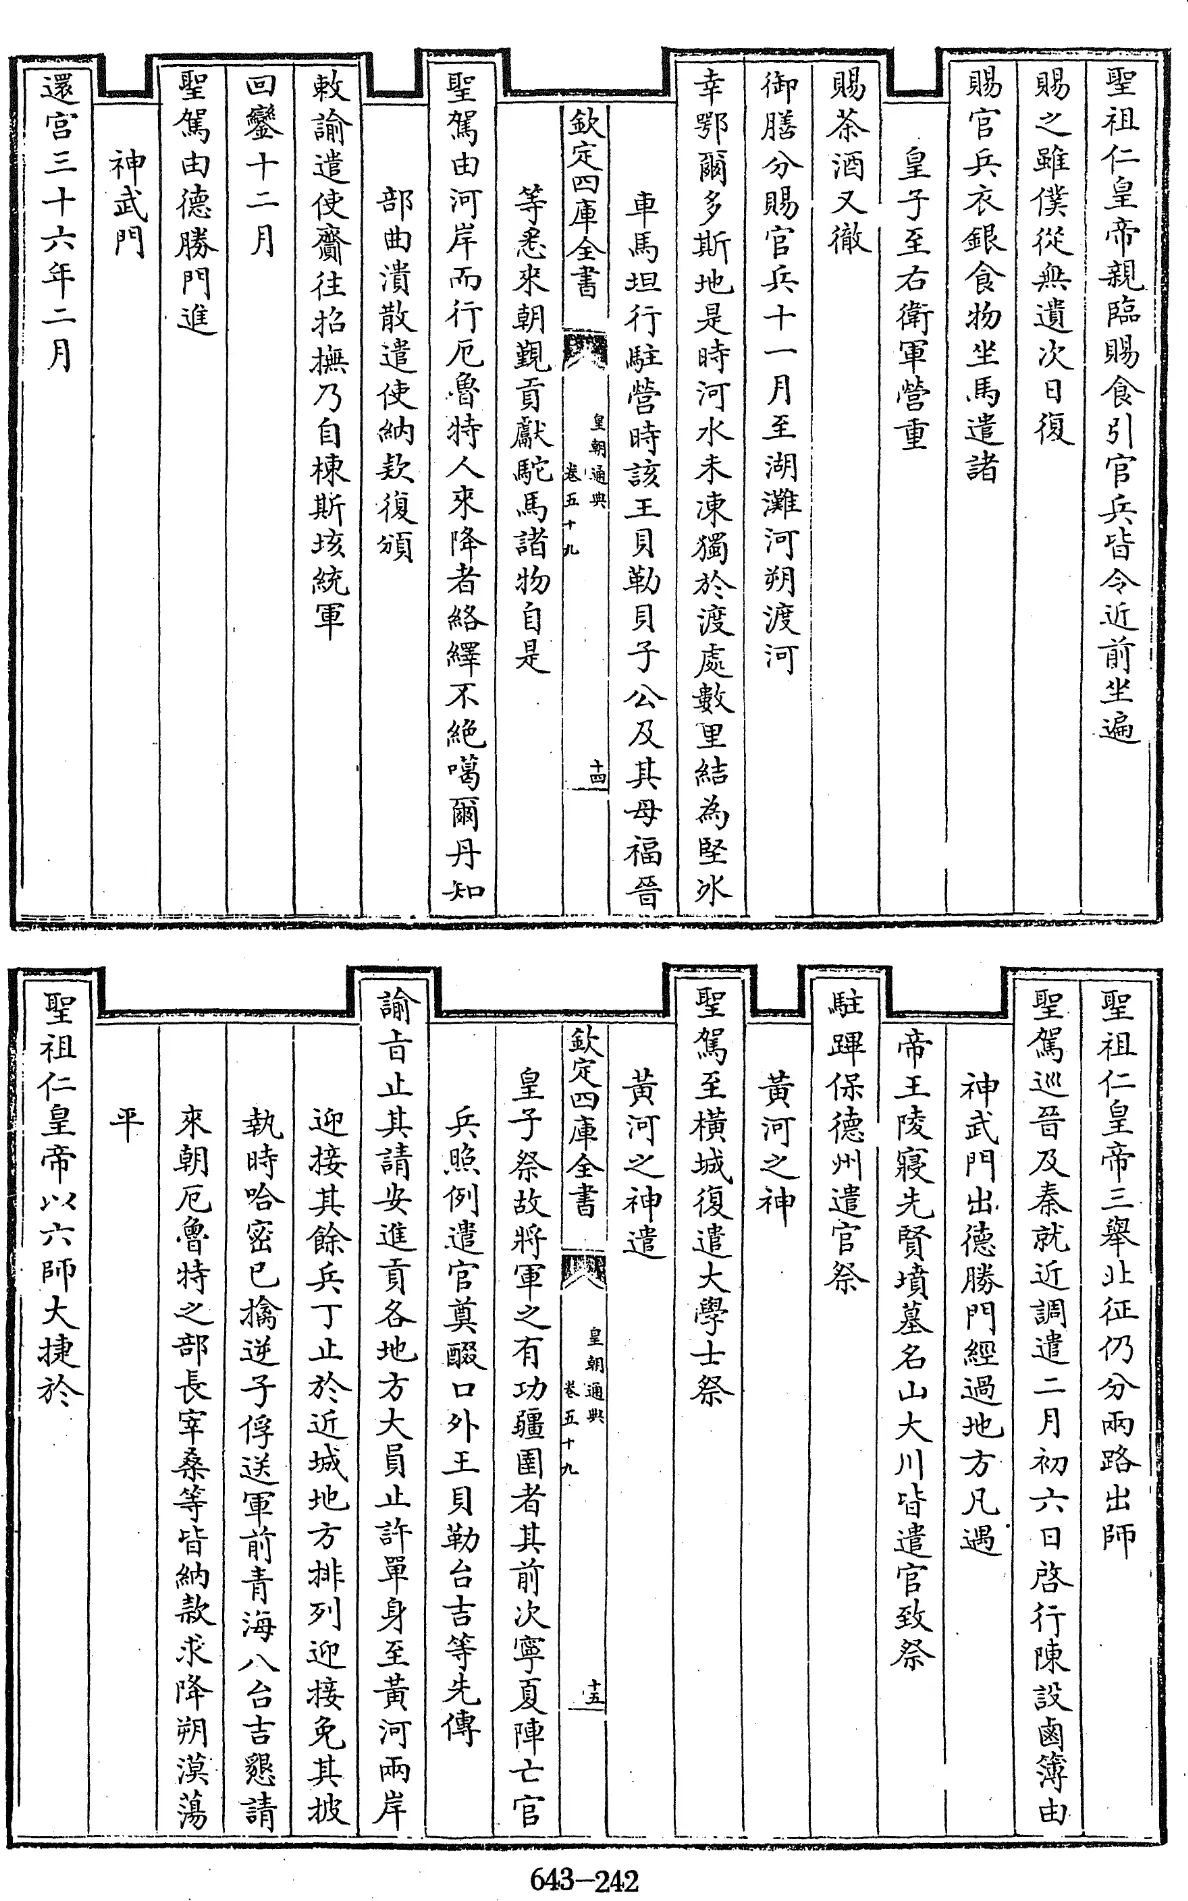 聖祖仁皇帝親臨賜食引官兵皆令近前坐遍
賜之雖僕從無遺次日復
賜官兵衣銀食物坐馬遣諸
皇子至右衛軍營重
賜茶酒又徹
御膳分賜官兵十一月至湖灘河朔渡河
幸鄂爾多斯地是時河水未凍獨於渡處數里結為堅冰
車馬坦行駐營時該王貝勒貝子公及其母福晉
欽定四庫全書
皇朝通典
卷五十九
十四
等悉來朝覲貢獻駝馬諸物自是
聖駕由河岸而行厄魯特人來降者絡繹不絶噶爾丹知
部曲潰散遣使納欵復頒
敕諭遣使齎往招撫乃自棟斯垓統軍
回鑾十二月
聖駕由德勝門進
神武門
還宮三十六年二月
聖祖仁皇帝三舉北征仍分兩路出師
聖駕巡晉及秦就近調遣二月初六日啓行陳設鹵簿由
神武門出德勝門經過地方凡遇
帝王陵寢先賢墳墓名山大川皆遣官致祭
駐蹕保德州遣官祭
黃河之神
聖駕至橫城復遣大學士祭
黃河之神遣
欽定四庫全書
皇朝通典
卷五十九
十五
皇子祭故將軍之有功疆圉者其前次寧夏陣亡官
兵照例遣官奠醊口外王貝勒台吉等先傳
諭旨止其請安進貢各地方大員止許單身至黃河兩岸
迎接其餘兵丁止於近城地方排列迎接免其披
執時哈密已擒逆子俘送軍前青海八台吉懇請
來朝厄魯特之部長宰桑等皆納款求降朔漠蕩
平
聖祖仁皇帝以六師大捷於
643-242